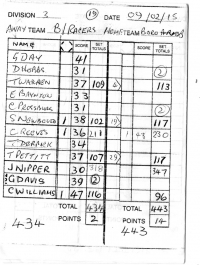 DIVISION 3 (19) DATE 09/02/15
AWAY TEAM B/RACERS HOME TEAM BORO
NAME SCORE SET TOTALS SCORE SET TOTALS
G DAY 41
D HOBBS 31 (2)
T WARREN 37 109 4 113
E BAYNTON 33
C 31 (2)
S NEWBOULD 1 38 102 19 117
C REEVES 1 36 211 1 43 230
T 34
T PETTITT 37 107 29 117
J NIPPER 30 318 347
G DAVIS 39 (2)
C WILLIAMS 1 47 116 96
TOTAL 434 TOTAL 443
POINTS 2 POINTS 14
434 443